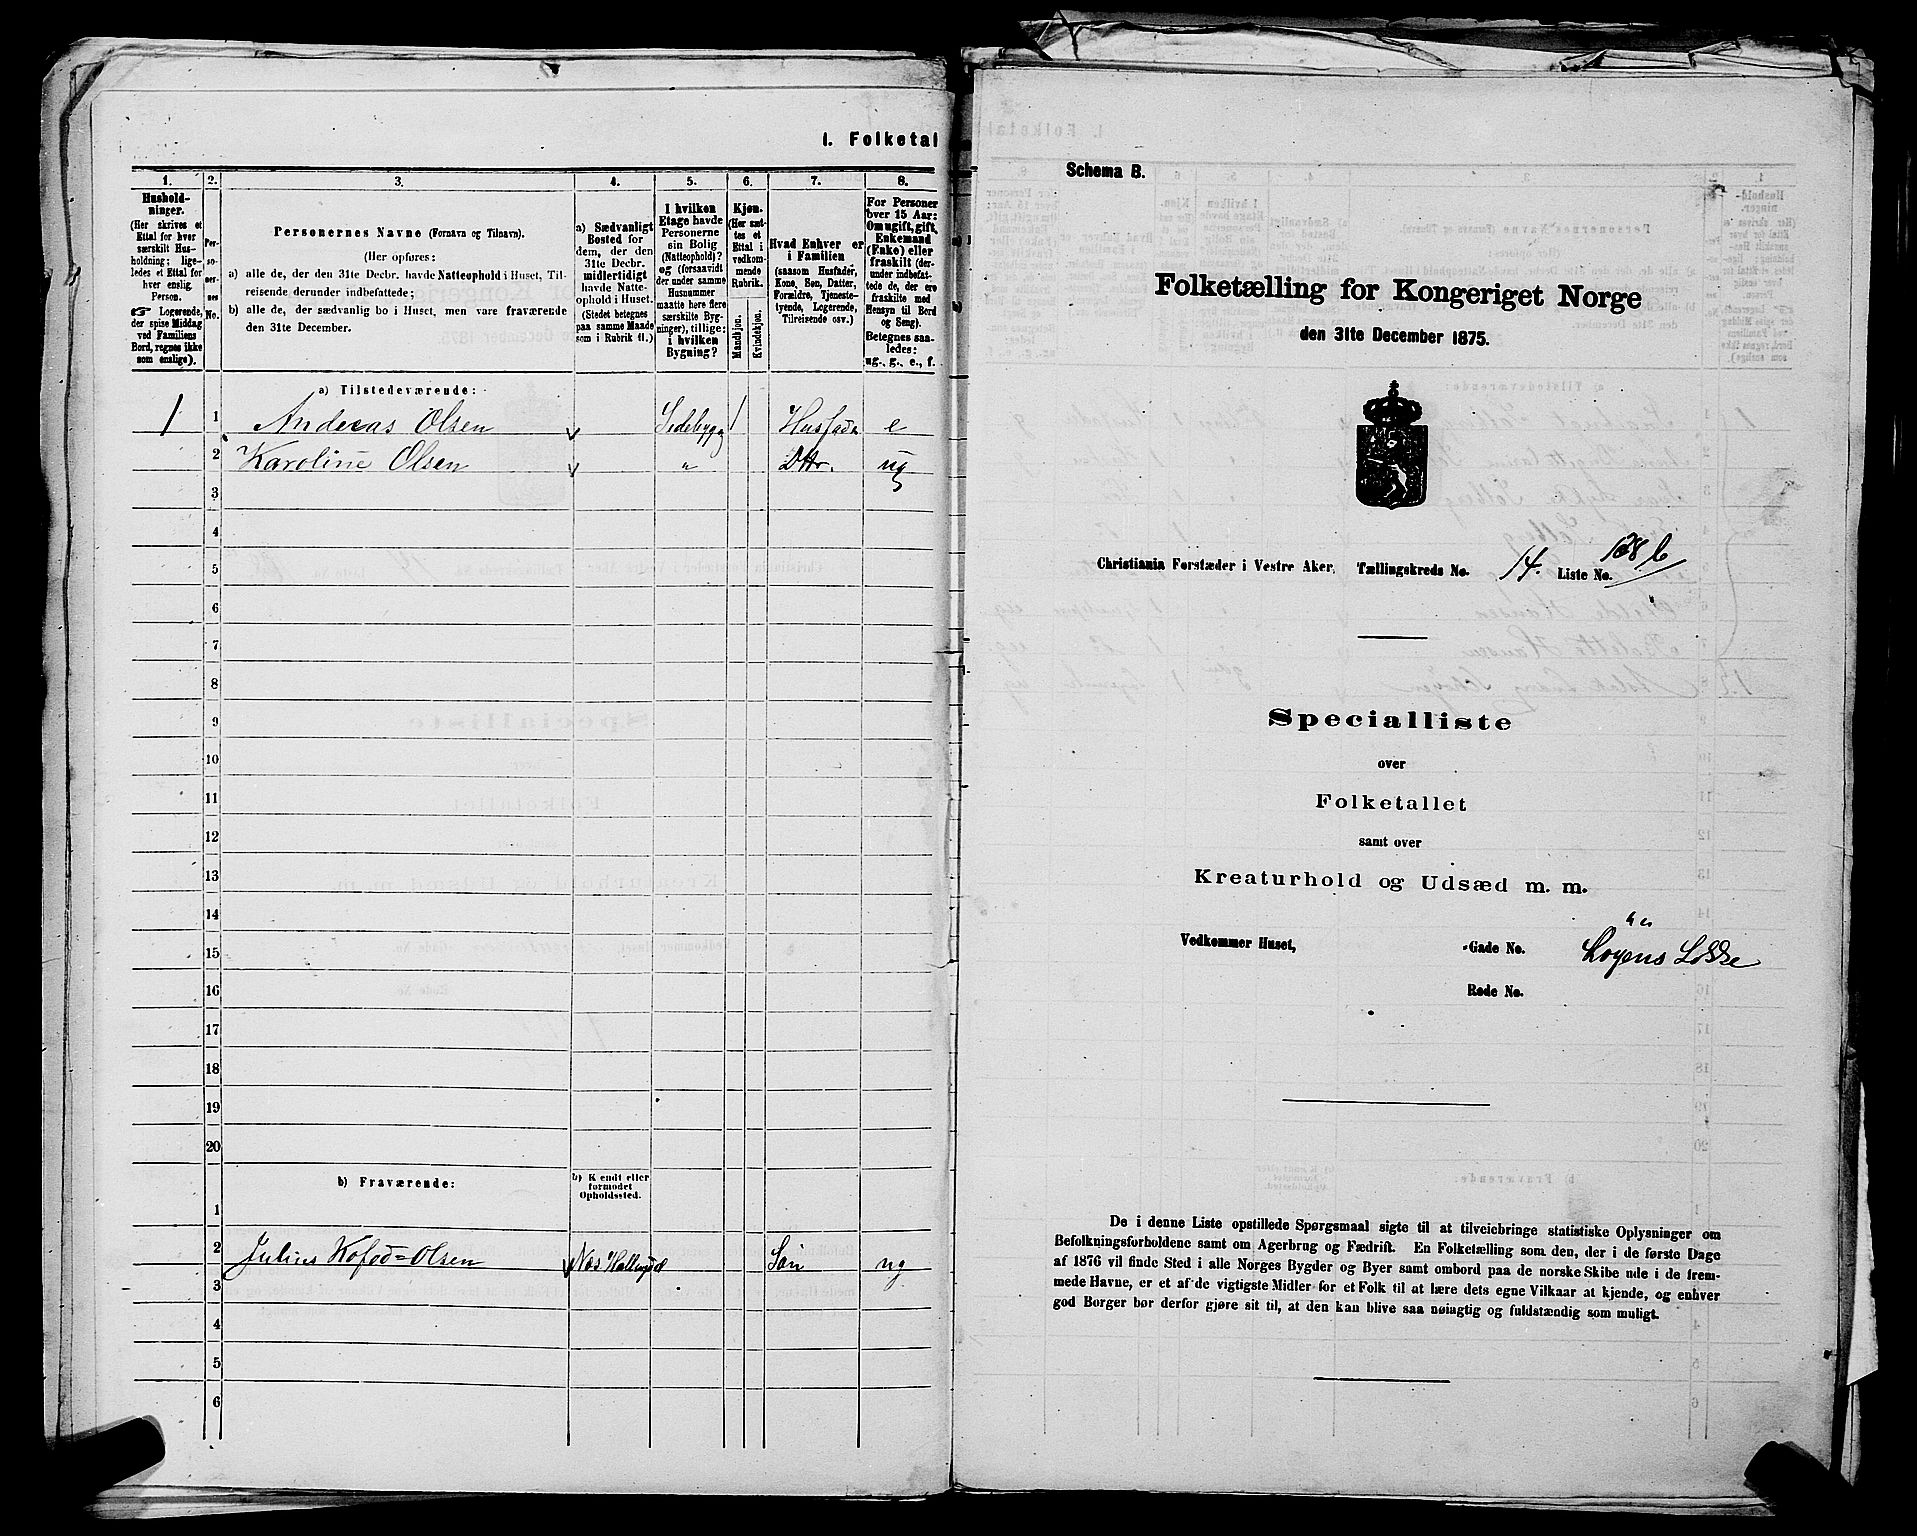 1. Folketal
1. 2. 3. 4. 5. 6. 7. 8.
Hushold-
ninger.
(Her skrives et
Ettal for hver
særskilt Hus-
holdning; lige-
ledes et Ettal for
hver enslig.
Person.
☞ Logerende,
der spise Middag
ved Familiens
Bord, regnes ikke
som enslige).
Per-
so-
ner-
nes
No.
Personernes Navne (Fornavn og Tilnavn).
(Her opføres:
a) alle de, der den 31te Decbr. havde Natteophold i Huset, Til-
reisende derunder indbefattede;
b) alle de, der sædvanlig bo i Huset, men vare fraværende
den 31te December.
a) Sædvanligt
Bosted for
dem, der den
31te Decbr.
midlertidigt
havde Natte-
ophold i Huset.
(Stedet betegnes
paa samme Maade
som i Rubrik 11.)
I hvilken
Etage havde
Personerne
sin Bolig
(Natteophold)?
og (forsaavidt
der under samme
Husnummer
maatte høre flere
særskilte Byg-
ninger), tillige:
i hvilken
Bygning?
Kjøn.
(Her sæt-
tes et
Ettal i
vedkom-
mende
Rubrik.
Mandkjøn.
Kvindekjøn.
Hvad Enhver er
i Familien
(saasom Husfader,
Kone, Søn, Datter,
Forældre, Tjeneste-
tyende, Logerende,
Tilreisende osv.)
For Personer
over 15 Aar:
Om ugift, gift,
Enkemand
(Enke) eller
fraskilt (der-
under indbefat-
tede de, der ere
fraskilte med
Hensyn til Bord
og Seng).
Betegnes saa-
ledes:
ug., g., e., f.
a) Tilstedeværende:
1 1 Andreas Olsen Sidebygn 1 Husfader e
2 Karoline Olsen " Dttr. ug
3
4
5
6
7
8
9
10
11
12
13
14
15
16
17
18
19
20
b) Fraværende:
b) Kjendt eller
formodet
Opholdssted.
1
2 Julius Kofod=Olsen Næs Hallingdal Søn ug
3
4
5
6
Schema B.
Folketælling for Kongeriget Norge
den 31te December 1875.
Christiania Forstæder i Vestre Aker. Tællingskreds No. 14. Liste No. 128 b
Specialliste
over
Folketallet
samt over
Kreaturhold og Udsæd m. m.
Vedkommer Huset, -Gade No. Løkke
Rode No.
De i denne Liste opstillede Spørgsmaal sigte til at tilveiebringe statistiske Oplysninger om
Befolkningsforholdene samt om Agerbrug og Fædrift. En Folketælling som den, der i de første Dage
af 1876 vil finde Sted i alle Norges Bygder og Byer samt ombord paa de norske Skibe ude i de frem-
mede Havne, er et af de vigtigste Midler for et Folk til at lære dets egne Vilkaar at kjende, og enhver
god Borger bør derfor gjøre sit til, at den kan blive saa nøiagtig og fuldstændig som muligt.